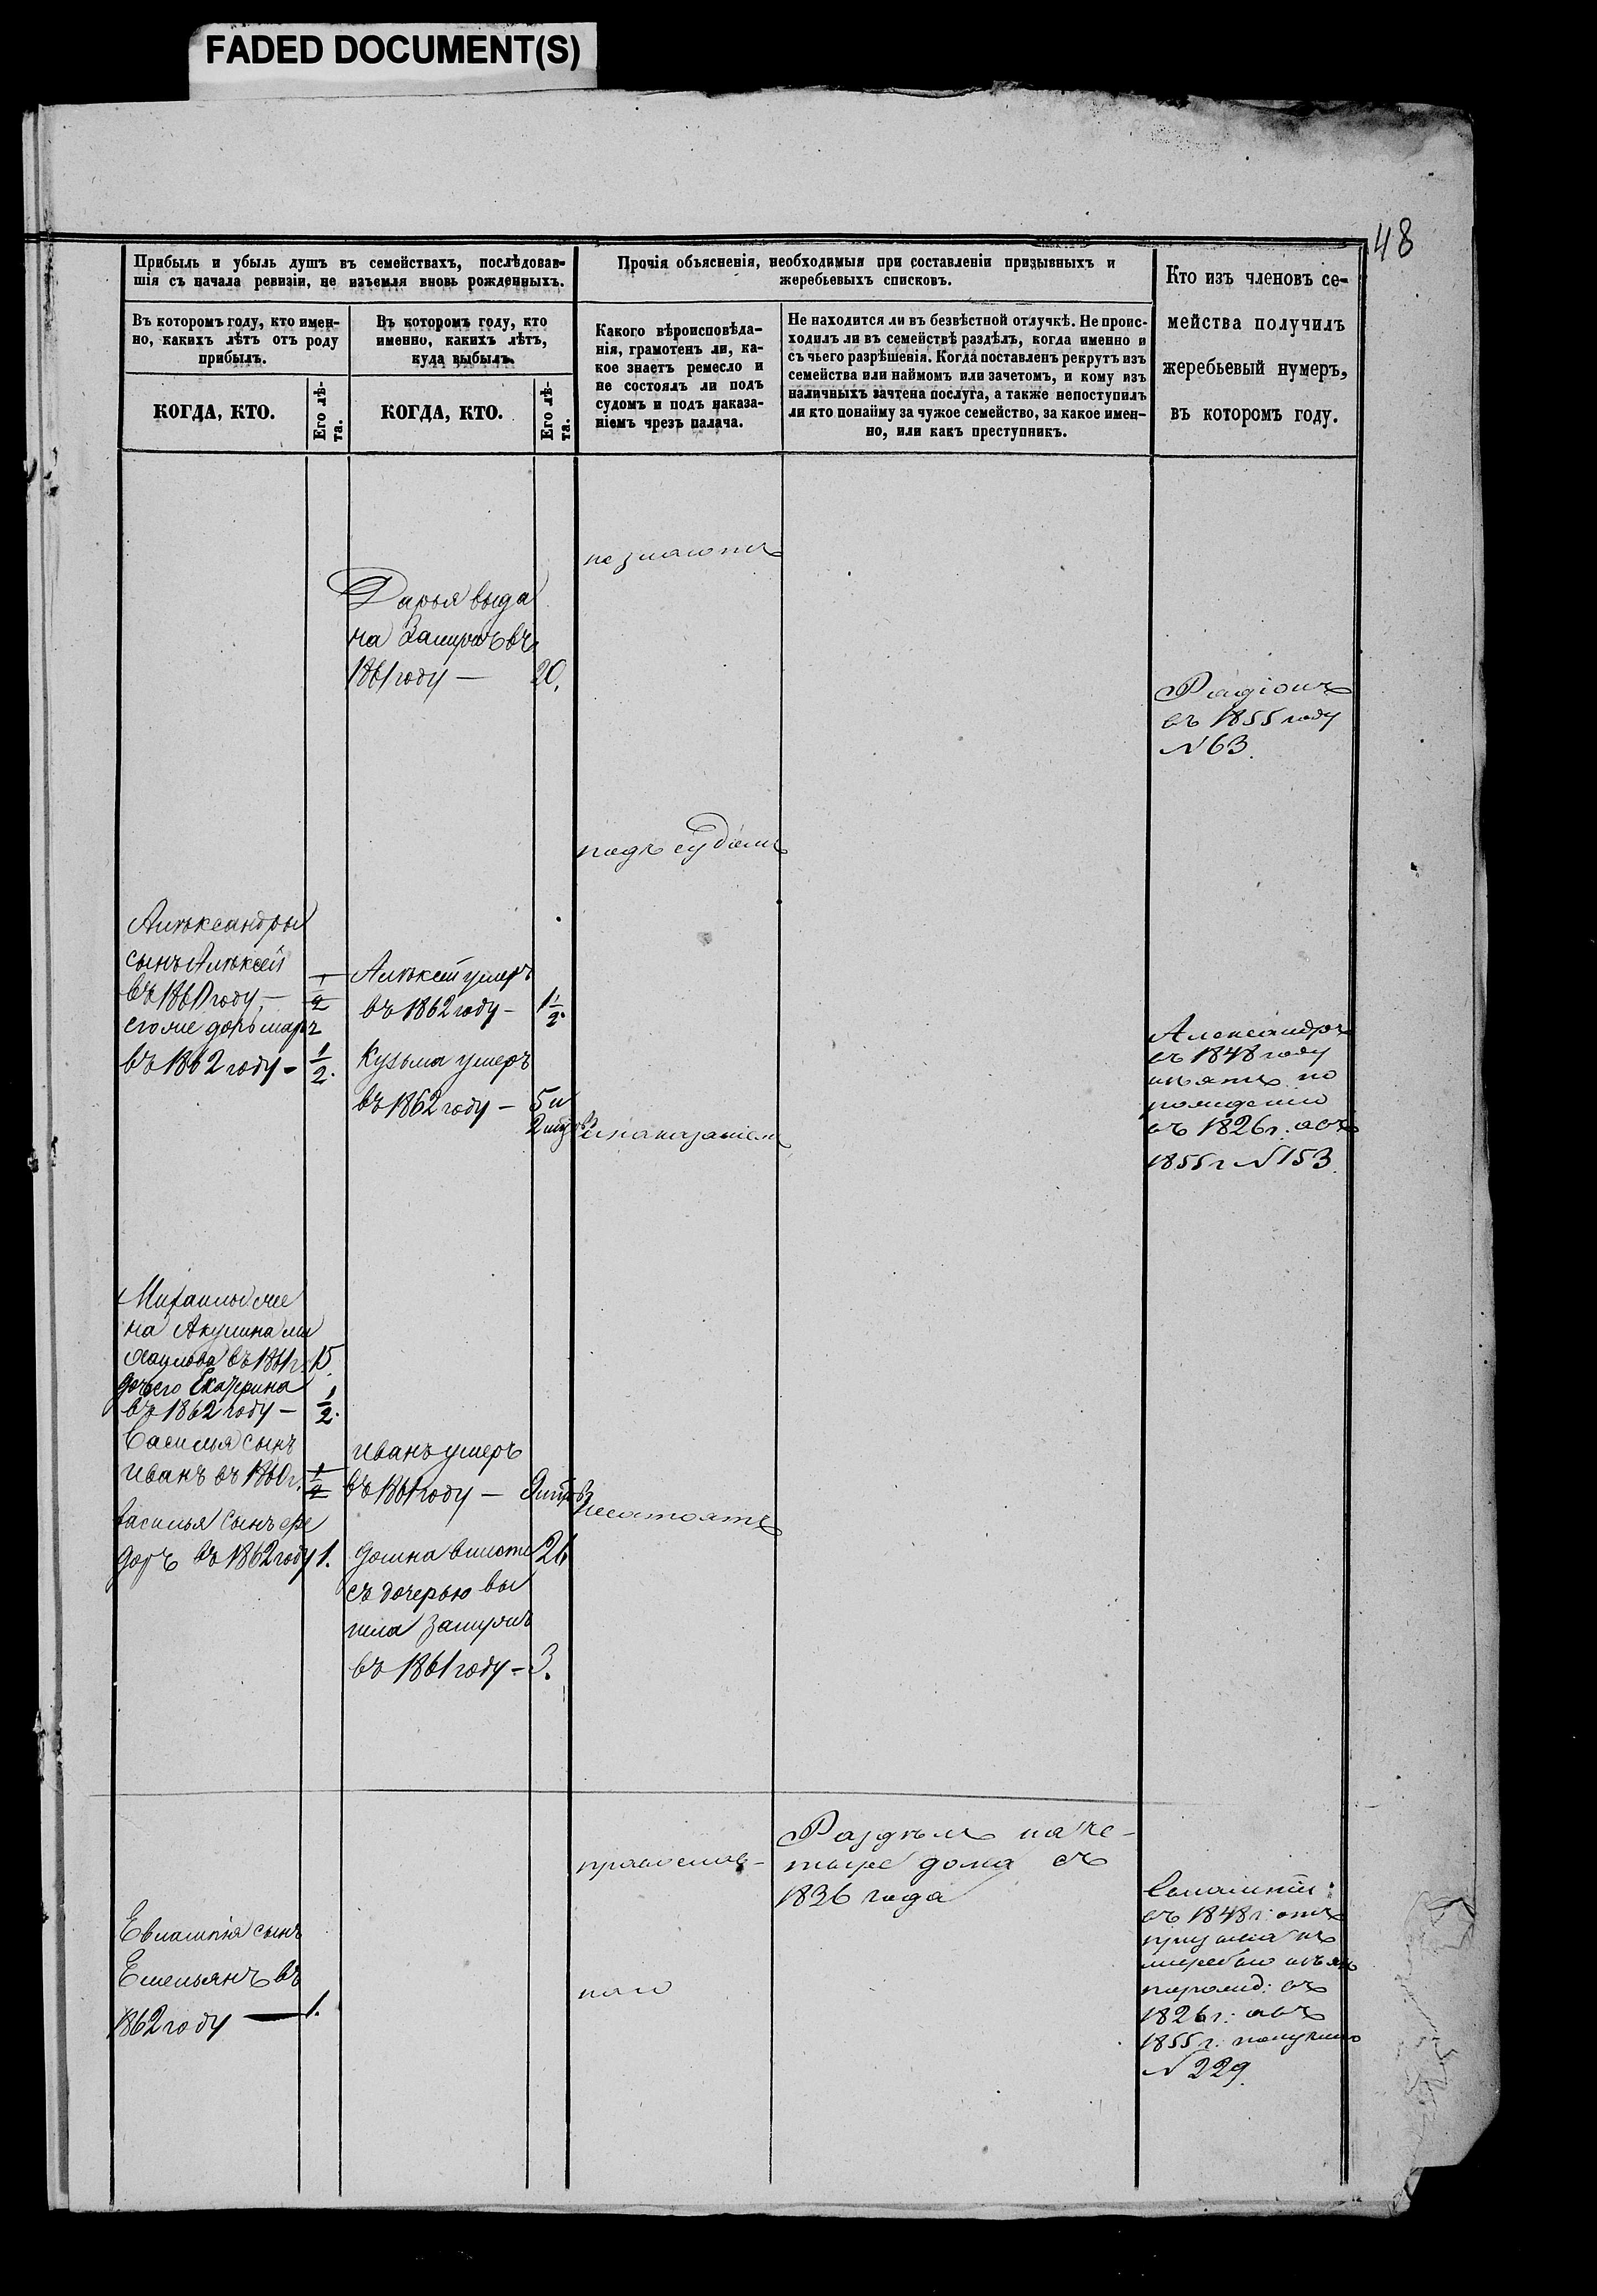 FADED DOCUMENT(S)
48
Прибыль и убыль душъ въ семействахъ, послѣдовав-
шія съ начала ревизіи, не изъемля вновь рожденныхъ.
Прочія объясненія, необходимыя при составленіи призывныхъ и
жеребьевыхъ списковъ.
Кто изъ членовъ се-
мейства получилъ
жеребьевый нумеръ,
въ которомъ году.
Въ которомъ году, кто имен-
но, какихъ лѣтъ отъ роду
прибылъ.
Въ которомъ году, кто
именно, какихъ лѣтъ,
куда выбылъ.
Какого вѣроисповѣда-
нія, грамотенъ ли, ка-
кое знаетъ ремесло и
не состоялъ ли подъ
судомъ и подъ наказа-
ніемъ чрезъ палача.
Не находится ли въ безвѣстной отлучкѣ. Не проис-
ходилъ ли въ семействѣ раздѣлъ, когда именно и
съ чьего разрѣшенія. Когда поставленъ рекрутъ изъ
семейства или наймомъ или зачетомъ, и кому изъ
наличныхъ зачтена послуга, а также непоступилъ
ли кто понайму за чужое семейство, за какое имен-
но, или какъ преступникъ.
КОГДА, КТО.
Его лѣ-
та.
КОГДА, КТО.
Его лѣ-
та.
не знаютъ
Дарья выда
на Замужъ въ
1861 году — 20.
Радіонъ
въ 1855 году
№ 63.
подъ судомъ
Алѣксандры
сынъ Алѣксѣй
въ 1860 году — 1/2
его же дочь
въ 1862 году - 1/2.
Алѣксѣй умеръ
въ 1862 году - 1 1/2.
Кузьма умеръ
въ 1862 году - 5 и
Александръ
въ 1848 году
изъятъ по
рожденію
въ 1826 г: авъ
1855 г № 153.
и наказаніемъ
Михаилы же
на Акулина ми
хаилова въ 1861 г. 15.
дочь его Екатерина
въ 1862 году — 1/2.
Василья сынъ
Иванъ въ 1860 г. 1/2
Василья сынъ Фе
доръ въ 1862 году 1.
Иванъ умеръ
въ 1861 году —
Домна вмѣстѣ 26
съ дочерью вы
шла замужъ
въ 1861 году - 3.
несостоятъ
православ-
Раздѣлъ на че-
тыре дома съ
1836 года
Евлампія сынъ
Емельянъ въ
1862 году — 1.
наго
въ 1848 г: отъ
призыва къ
жеребью изъят
порожд: въ
1826 г: авъ
1855 г: получилъ
№ 229.